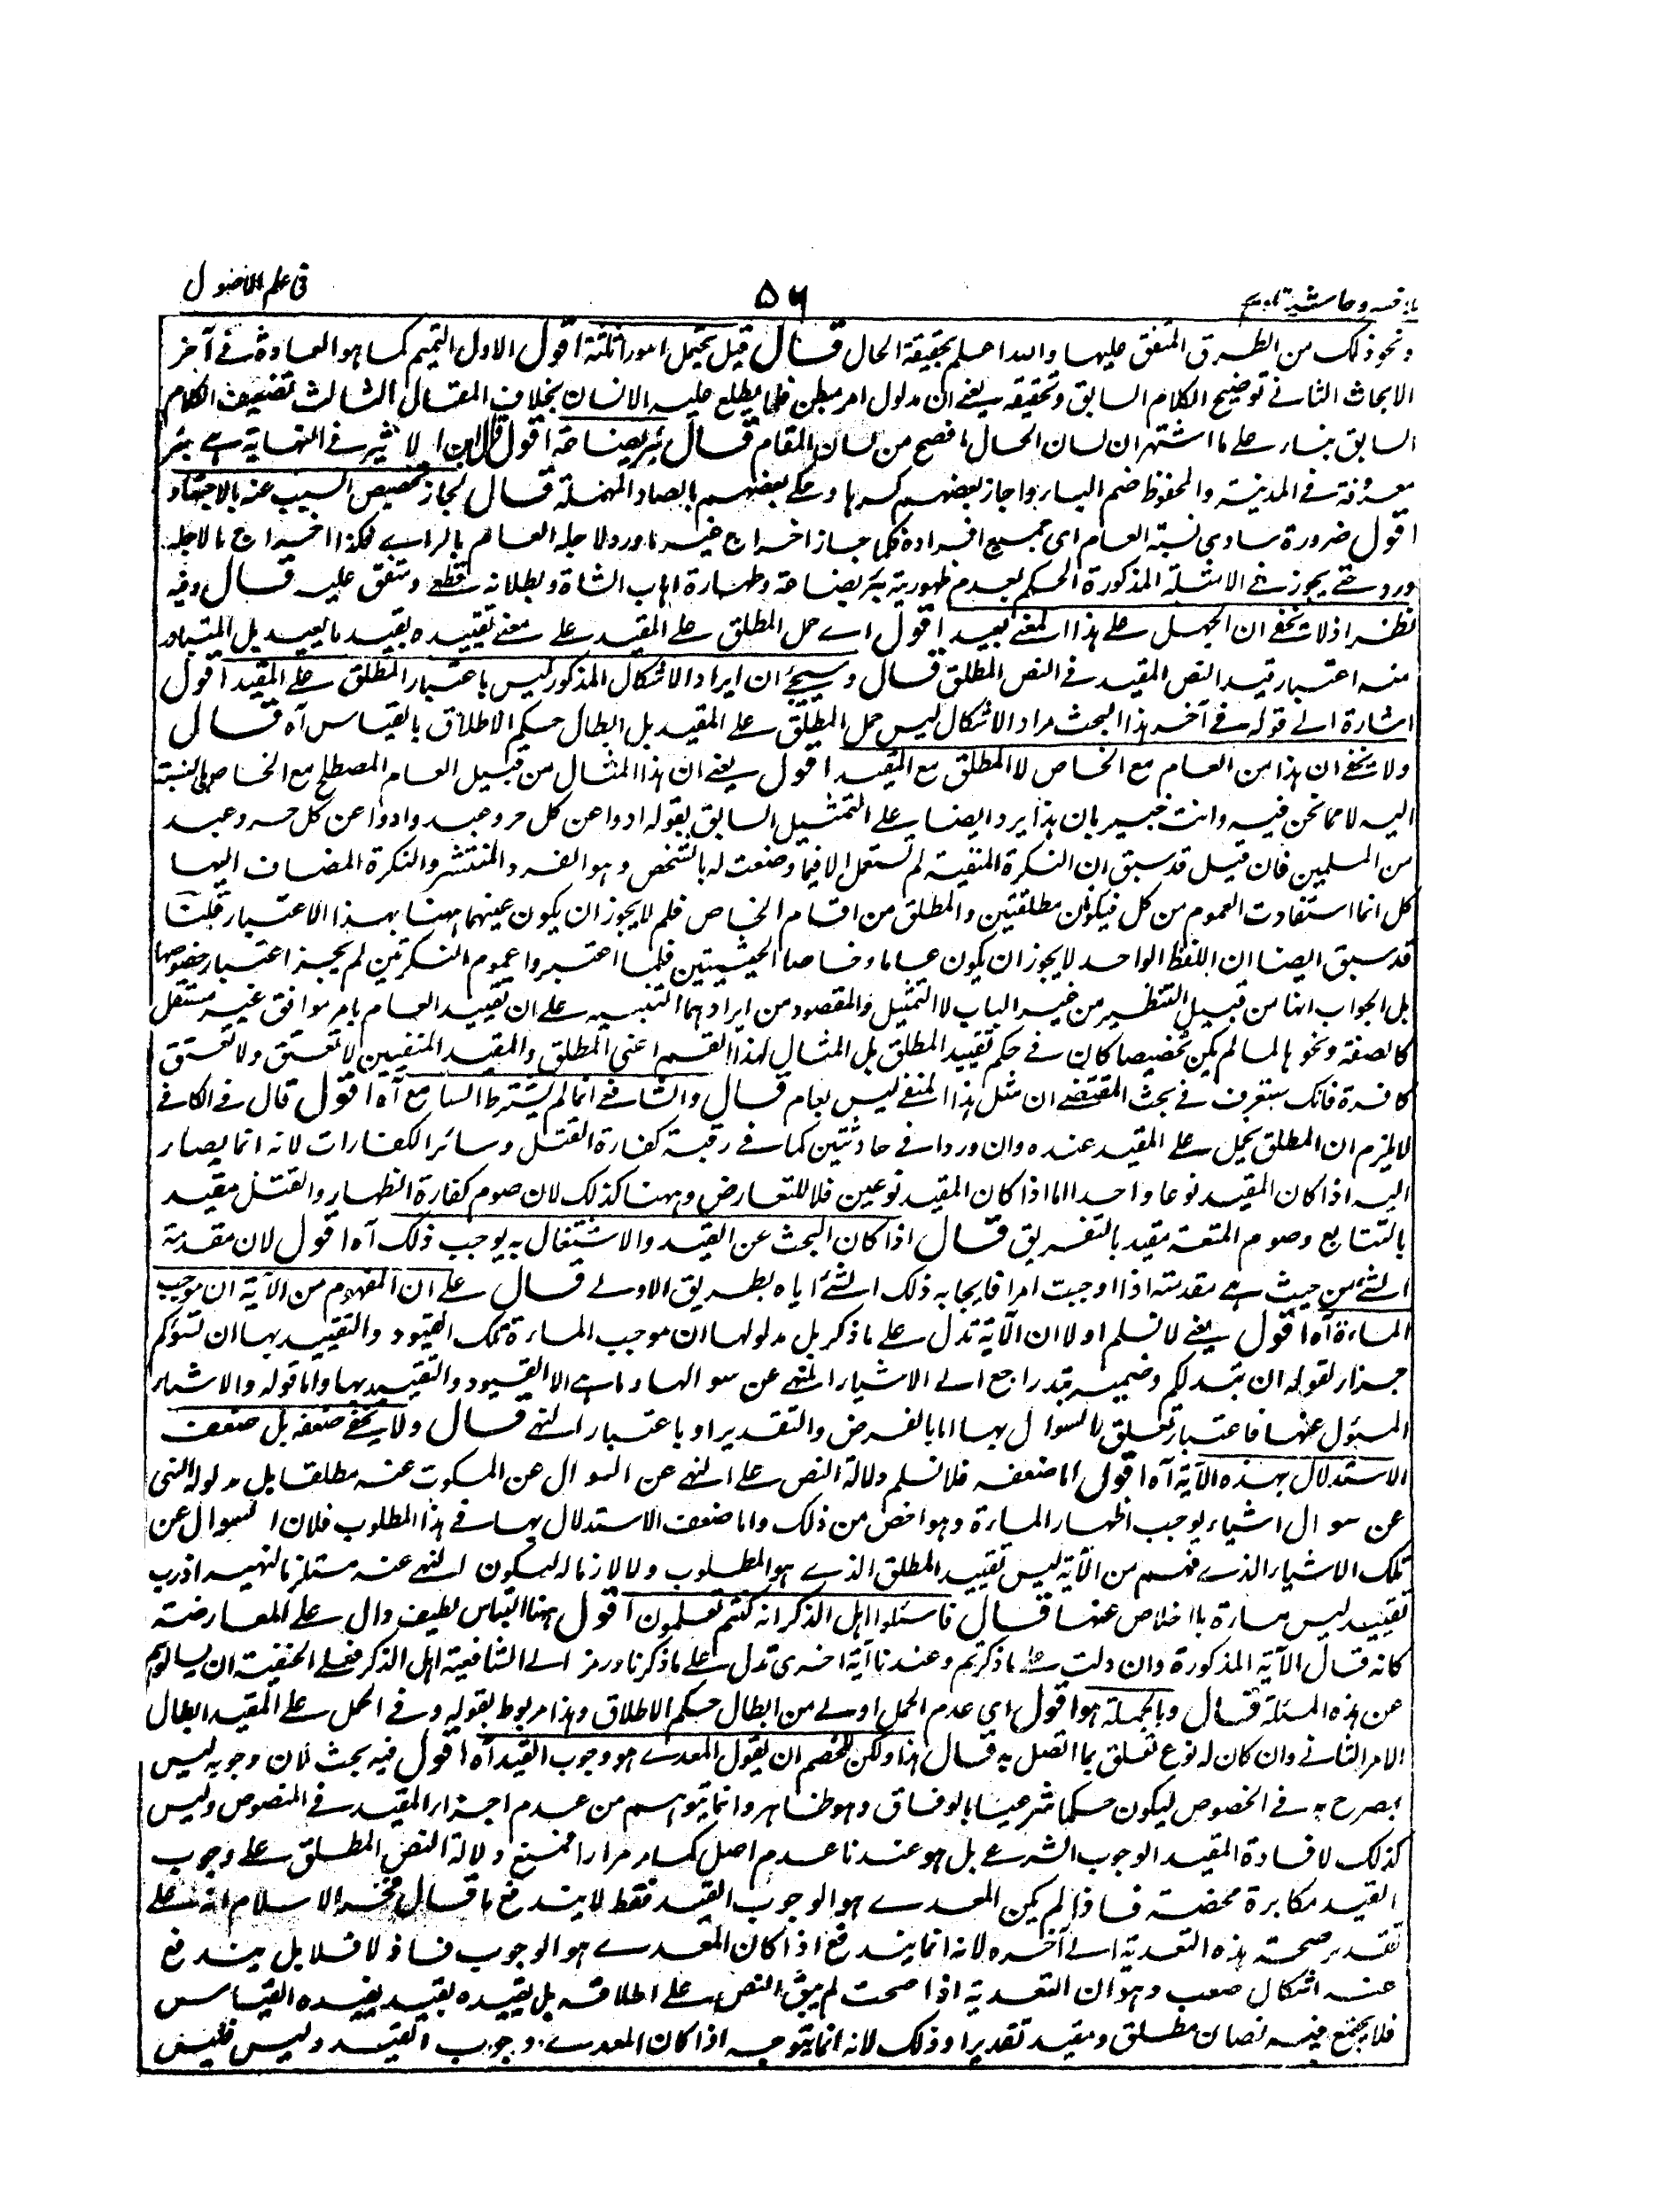 في علم الاصول
٥٦
وحاشية
ونحو ذلك من الطرق المتفق عليها والله اعلم بحقيقة الحال قال قيل يحتمل امورا ثلثة اقول الاول التتميم كما هو العادة في آخر
الابحاث الثاني توضيح الكلام السابق وتحقيقه يعني ان مدلول امر مبطن فلما يطلع عليه الانسان بخلاف المقال الثالث تضعيف الكلام
السابق بناء على ما اشتهر ان لسان الحال افصح من لسان المقام قال بئر بضاعة اقول قال ابن الاثير في النهاية هي بئر
معروفة في المدينة والمحفوظ ضم الباء واجاز بعضهم كسرها وحكى بعضهم بالصاد المهملة قال لجاز تخصيص السبب عنه بالاجتهاد
اقول ضرورة تساوي نسبة العام اى جميع افراده فكما جاز اخراج غير ما ورد لاجله العام بالراى فكذا اخراج ما لاجله
ورد حتى يجوز في الامثلة المذكورة الحكم بعدم طهورية بئر بضاعة وطهارة اهاب الشاة وبطلانه قطعى ومتفق عليه قال وفيه
نظر اذ لا يخفى ان الحمل على هذا المعنى بعيد اقول اى حمل المطلق على المقيد على معنى تقييده بقيد ما بعيد بل المتبادر
منه اعتبار قيد النص المقيد في النص المطلق قال وسيجئ ان ايراد الاشكال المذكور ليس باعتبار المطلق على المقيد اقول
اشارة الى قوله في آخر هذا البحث مراد الاشكال ليس حمل المطلق على المقيد بل ابطال حكم الاطلاق بالقياس آه قال
ولا يخفى ان هذا من العام مع الخاص لا المطلق مع المقيد اقول يعني ان هذا المثال من قبيل العام المصطلح مع الخاص بالنسبة
اليه لا مما نحن فيه وانت خبير بان هذا يرد ايضا على التمثيل السابق بقوله ادوا عن كل حر وعبد وادوا عن كل حر وعبد
من المسلمين فان قيل قد سبق ان النكرة المنفية لم تستعمل الا فيما وضعت له بالشخص وهو الفرد المنتشر والنكرة المضاف اليها
كل انما استفادت العموم من كل فيكونان مطلقتين والمطلق من اقسام الخاص فلم لا يجوز ان يكون عينهما ههنا بهذا الاعتبار قلنا
قد سبق ايضا ان اللفظ الواحد لا يجوز ان يكون عاما وخاصا بالحيثيتين فلما اعتبروا عموم النكرتين لم يجز اعتبار خصوصها
بل الجواب انها من قبيل التنظير من غير الباب لا التمثيل والمقصود من ايرادهما التنبيه على ان تقييد العام بامر موافق غير مستقل
كالصفة ونحوها لما لم يكن تخصيصا كان في حكم تقييد المطلق بل المثال لهذا القسم اعنى المطلق والمقيد المنفيين لا تعتق ولا تعتق
كافرة فانك ستعرف في بحث المقتضى ان مثل هذا المنفي ليس بعام قال والشافعي انما لم يشترط التتابع آه اقول قال في الكافي
لا يلزم ان المطلق يحمل على المقيد عنده وان وردا في حادثتين كما في رقبة كفارة القتل وسائر الكفارات لانه انما يصار
اليه اذا كان المقيد نوعا واحدا اما اذا كان المقيد نوعين فلا للتعارض وههنا كذلك لان صوم كفارة الظهار والقتل مقيد
بالتتابع وصوم المتعة مقيد بالتفريق قال اذا كان البحث عن القيد والاشتغال به يوجب ذلك آه اقول لان مقدمة
الشئ من حيث هى مقدمته اذا اوجبت امرا فايجابه ذلك الشئ اياه بطريق الاولى قال على ان المفهوم من الآية ان موجب
المساءة آه اقول يعني لا نسلم اولا ان الآية تدل على ما ذكر بل مدلولها ان موجب المساءة تلك القيود والتقييد بها ان تسؤكم
جزاء لقوله ان تبد لكم وضمير تبد راجع الى الاشياء المنهى عن سوالها وما هى الا القيود والتقييد بها واما قوله والاشياء
المسئول عنها فاعتبار تعلق السوال بها اما بالفرض والتقدير او باعتبار النهى قال ولا يخفى ضعفه بل ضعف
الاستدلال بهذه الآية آه اقول اما ضعفه فلا نسلم دلالة النص على النهى عن السوال عن المسكوت عنه مطلقا بل مدلوله النهى
عن سوال اشياء يوجب اظهار المساءة وهو اخص من ذلك واما ضعف الاستدلال بها في هذا المطلوب فلان السوال عن
تلك الاشياء الذى فهم من الآية ليس تقييد المطلق الذى هو المطلوب ولا لازما له ليكون النهى عنه مستلزما لنهيه اذ رب
تقييد ليس مساءة بالخلاص عنها قال فاسئلوا اهل الذكر ان كنتم تعلمون اقول هنا اقتباس لطيف دال على المعارضة
كانه قال الآية المذكورة وان دلت على ما ذكرتم وعندنا آية اخرى تدل على ما ذكرنا ورمز الى الشافعية اهل الذكر فعلى الحنفية ان يسالوهم
عن هذه المسئلة قال وبالجملة هو اقول اى عدم الحمل اولى من ابطال حكم الاطلاق وهذا مربوط بقوله وفي الحمل على المقيد ابطال
الامر الثاني وان كان له نوع تعلق بما اتصل به قال هذا ولكن للخصم ان يقول المعدى هو وجوب القيد آه اقول فيه بحث لان وجوبه ليس
بمصرح به في الخصوص ليكون حكما شرعيا بالوفاق وهو ظاهر وانما يتوهم من عدم اجزاء المقيد في المنصوص وليس
كذلك لافادة المقيد الوجوب الشرعى بل هو عندنا عدم اصلى كما مر مرارا فمنع دلالة النص المطلق على وجوب
القيد مكابرة محضة فاذا لم يكن المعدى هو الوجوب القيد فقط لا يندفع ما قال فخر الاسلام انه على
تقدير صحة هذه التعدية الى آخره لانه انما يندفع اذا كان المعدى هو الوجوب فاذ لا فلا بل يندفع
عنه اشكال صعب وهو ان التعدية اذا صحت لم يبق النص على اطلاقه بل تقييده بقيد يفيده القياس
فلا يجتمع فيه نصان مطلق ومقيد تقديرا وذلك لانه انما يتوجه اذا كان المعدى وجوب القيد وليس فليس